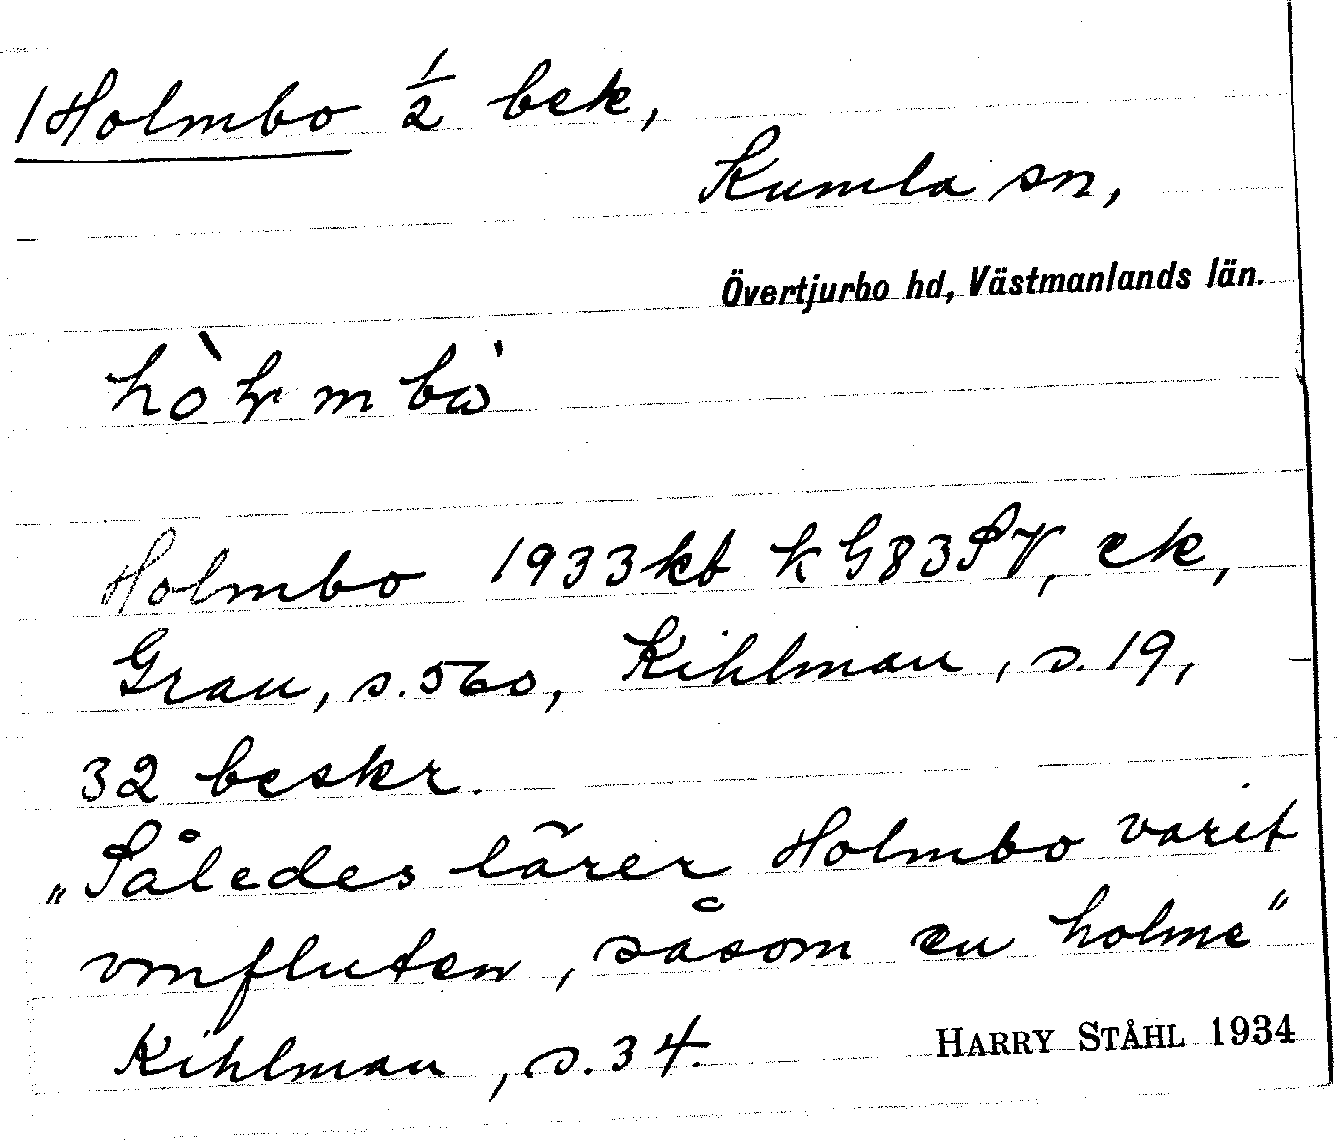 1 Holmbo 1/2 bek,
Kumla sn,
Övertjurbo hd, Västmanlands län.
Holmbo 1933 kb k G83SV, ek,
Grau, s. 560, Kihlman, s. 19,
32 beskr.
"Således lärer Holmbo varit
omfluten, såsom en holme"
Kihlman, s. 34.
HARRY STÅHL 1934